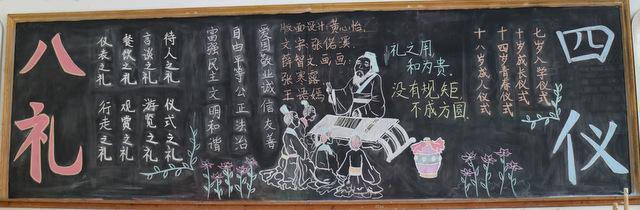 八礼
仪表之礼
餐饮之礼
言谈之礼
待人之礼
行走之礼
观赏之礼
游览之礼
仪式之礼
富强民主文明和谐
自由平等公正法治
爱国敬业诚信友善
版面设计:黄心怡.
文字:张偌溪.
薛智文 画画:
张 露
王语嫣
礼之用,
和为贵.
没有规矩,
不成方圆.
七岁入学仪式
十岁成长仪式
十四岁青春仪式
十八岁成人仪式
四仪